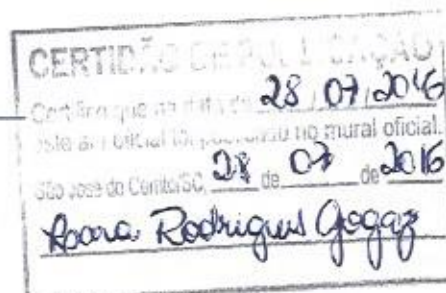 CERTIDÃO DE PUBLICAÇÃO
Certifico que na data de 28 07 2016
este ato oficial foi publicado no mural oficial.
São José do Cerrito/SC, 28 de 07 de 2016
Rodrigues